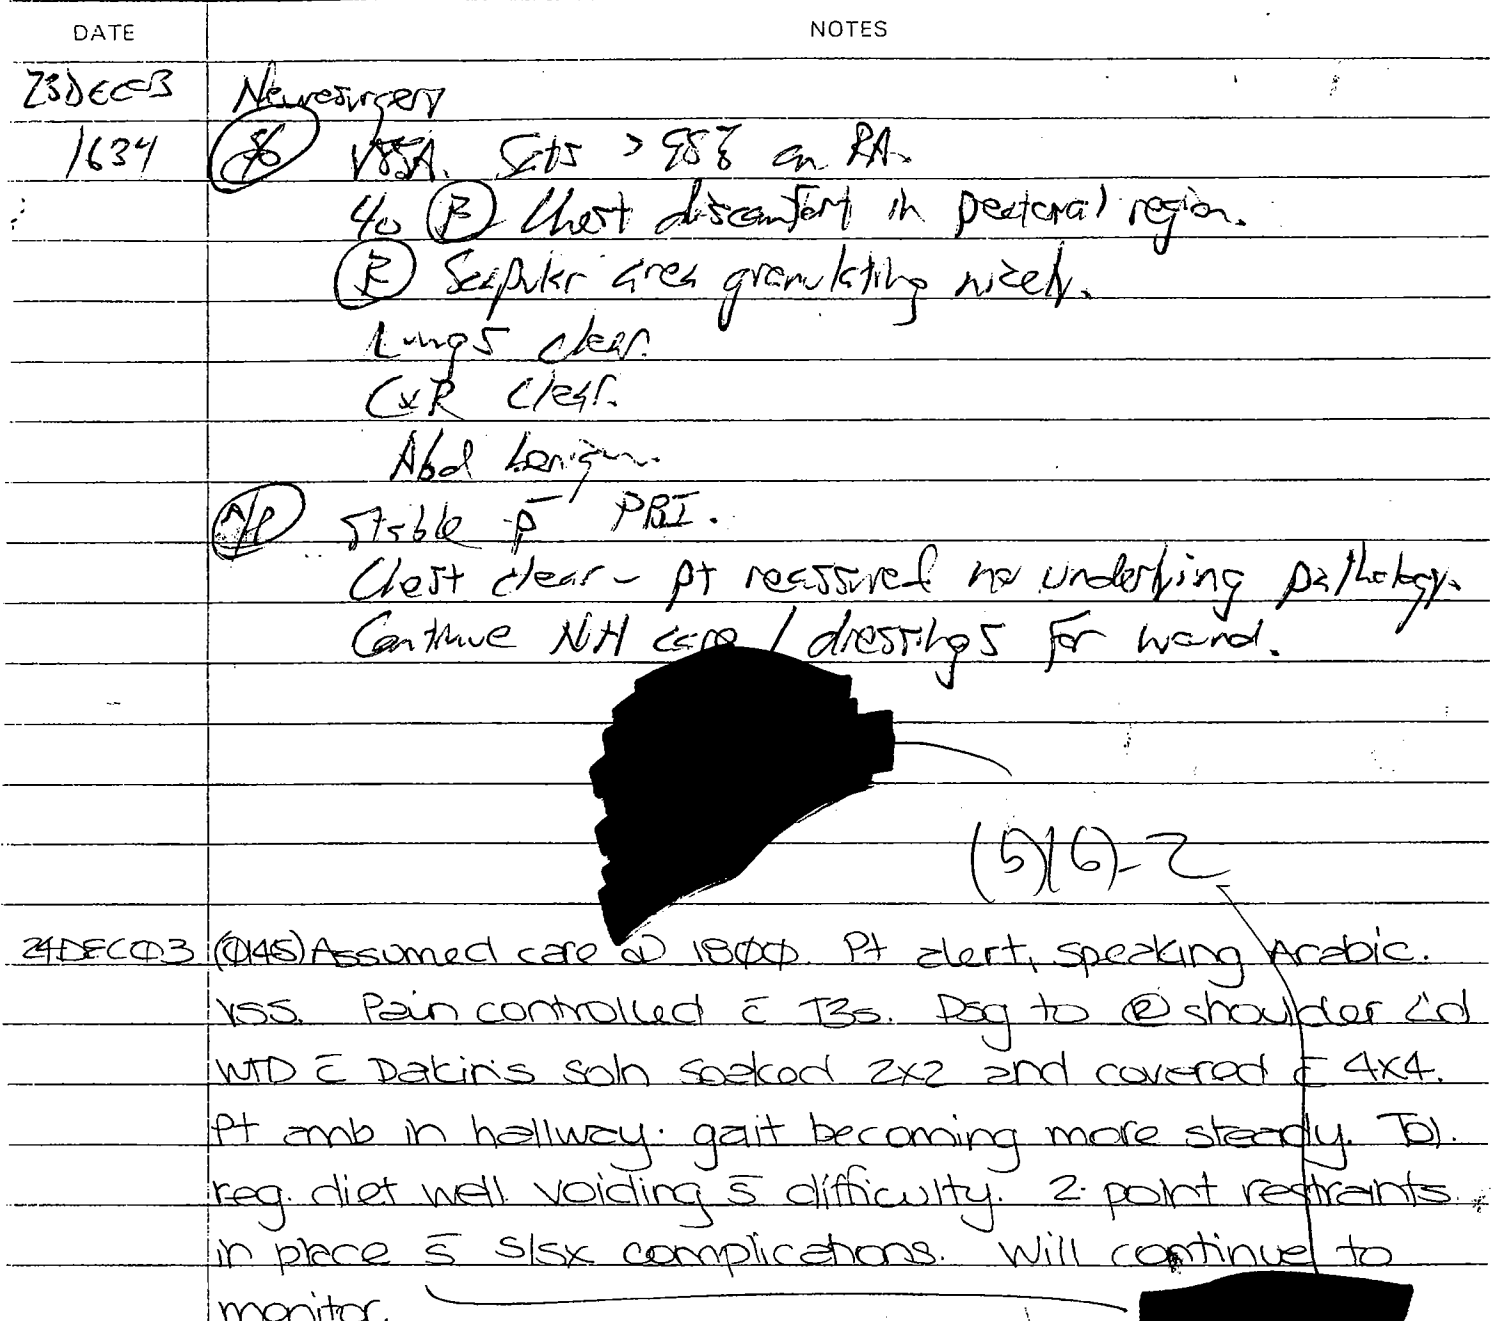 DATE NOTES
23DEC03 Neurosurgery
1634 S/O VSSA. Sats > 98% on RA.
c/o (R) Chest discomfort in pectoral region.
(R) Scapular area granulating nicely.
Lungs clear.
CXR clear.
Abd benign.
A/P Stable p̄ PBI.
Chest clear - pt reassured no underlying pathology.
Continue NH care / dressings for wound.
(b)(6)-2
24DEC03 (0145) Assumed care @ 1800. Pt alert, speaking Arabic.
VSS. Pain controlled c̄ T3s. Dsg to (R) shoulder Δ'd
WTD c̄ Dakin's soln soaked 2x2 and covered c̄ 4x4.
Pt amb in hallway. gait becoming more steady. Tol.
reg. diet well. voiding s̄ difficulty. 2-point restraints
in place s̄ s/sx complications. Will continue to
monitor.